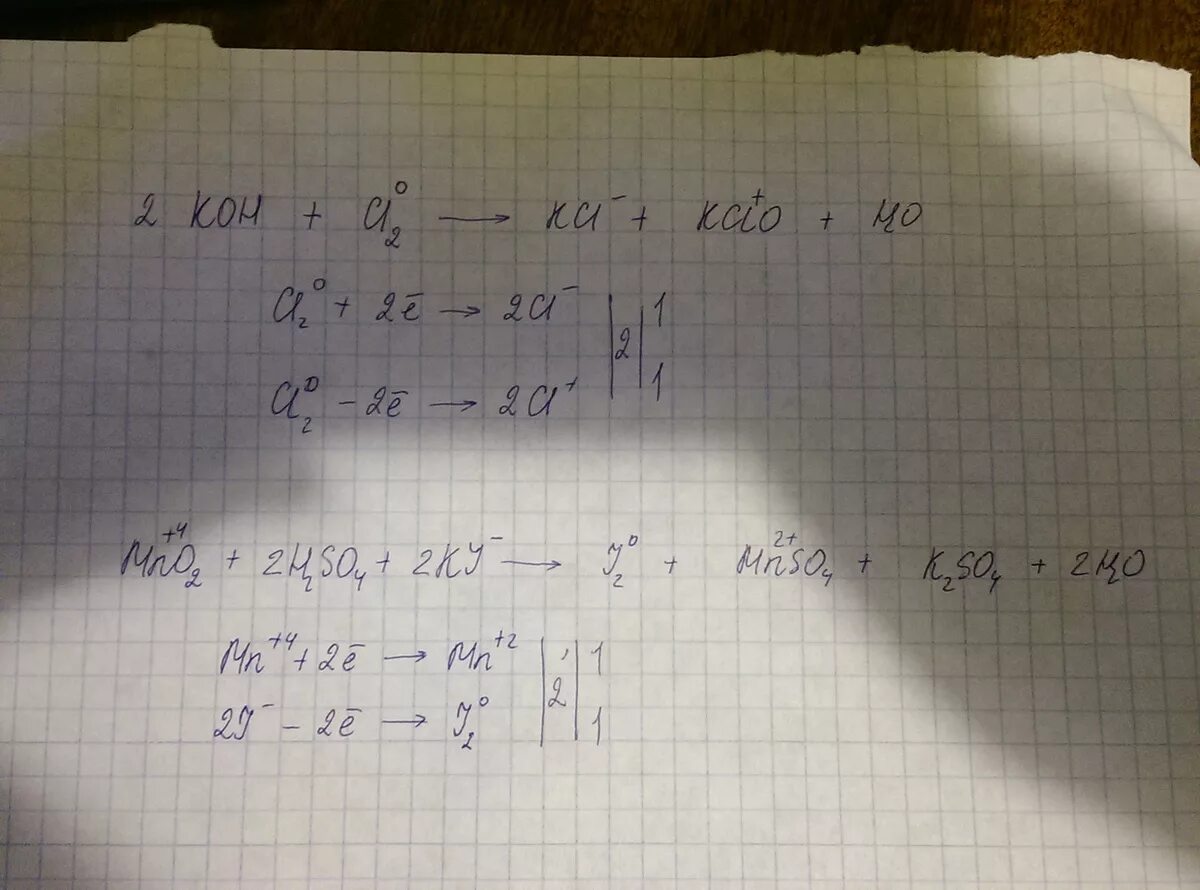 2 KOH + Cl₂⁰ → KCl⁻ + KCl⁺O + H₂O
Cl₂⁰ + 2ē → 2Cl⁻ | 2 | 1
Cl₂⁰ - 2ē → 2Cl⁺ | 1
Mn⁺⁴O₂ + 2H₂SO₄ + 2KJ⁻ → J₂⁰ + Mn²⁺SO₄ + K₂SO₄ + 2H₂O
Mn⁺⁴ + 2ē → Mn⁺² | 2 | 1
2J⁻ - 2ē → J₂⁰ | 1